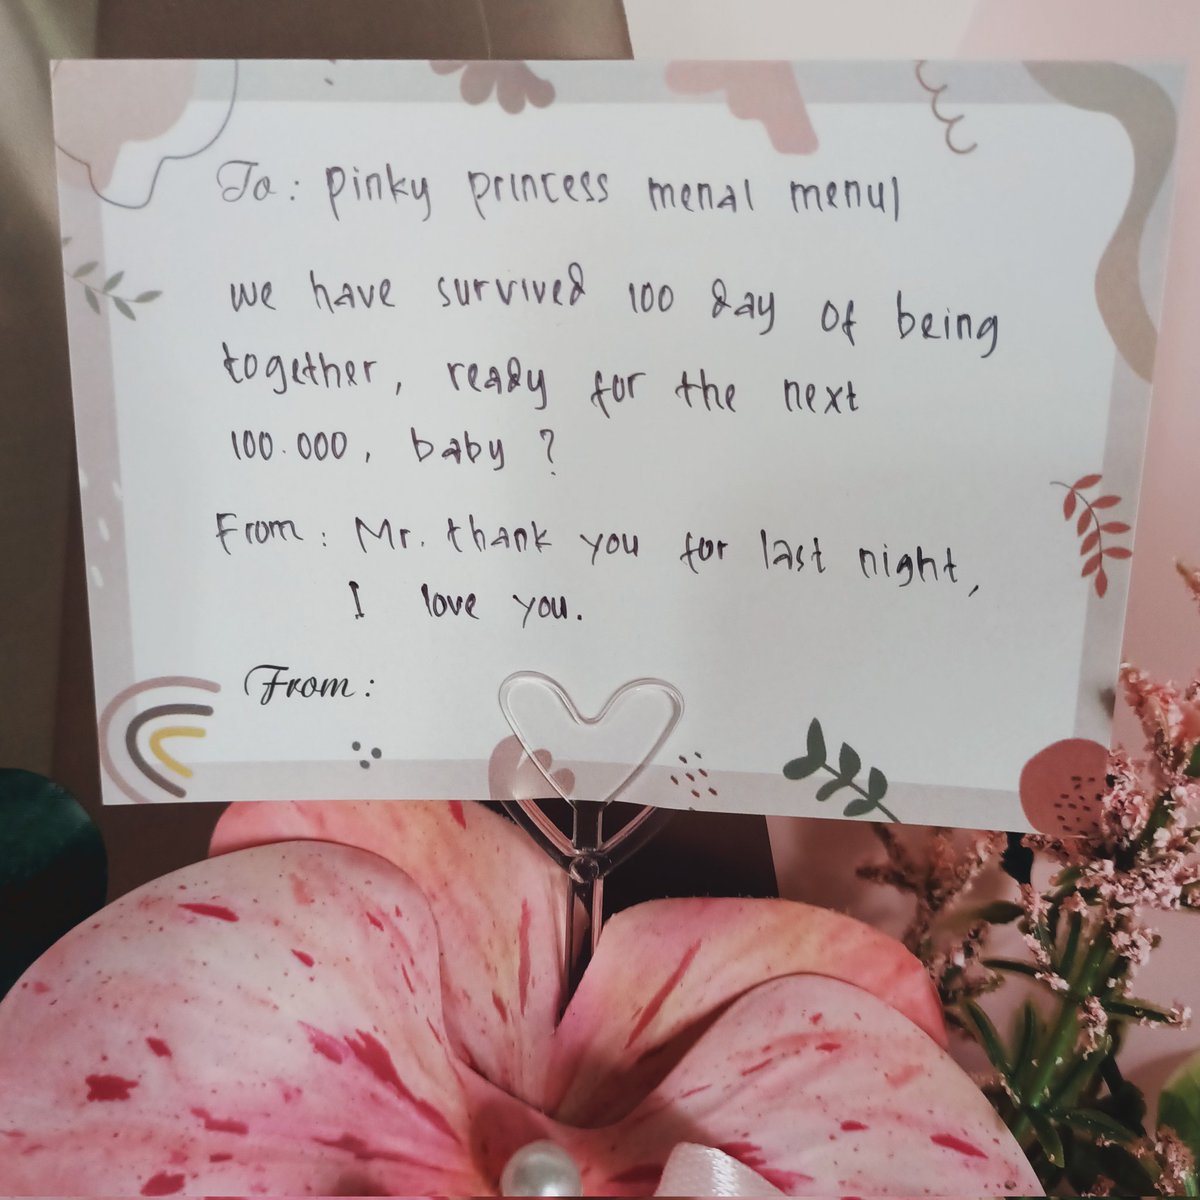 To: pinky princess menal menul
we have survived 100 day of being
together, ready for the next
100.000, baby?
From: Mr. thank you for last night,
I love you.
From: